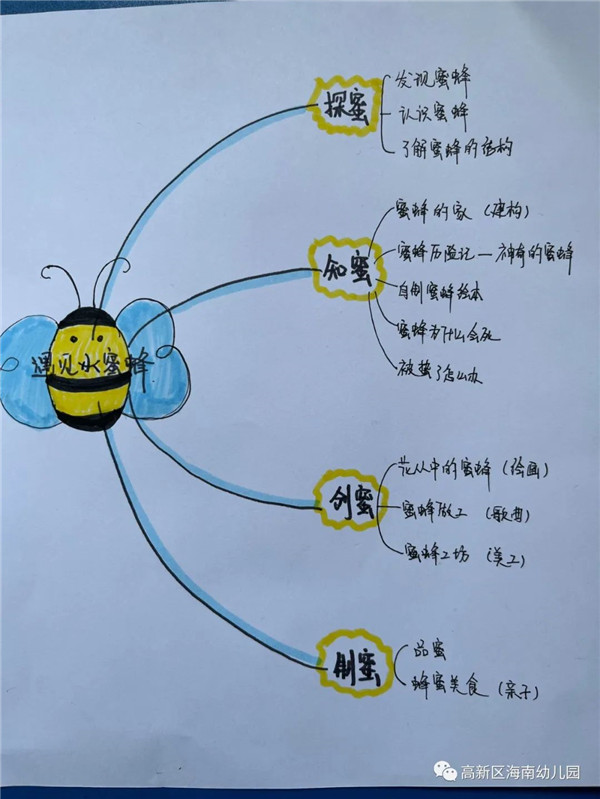 探蜜
发现蜜蜂
认识蜜蜂
了解蜜蜂的结构
知蜜
蜜蜂的家（建构）
蜜蜂历险记—神奇的蜜蜂
自制蜜蜂绘本
蜜蜂为什么会死
被蛰了怎么办
遇见小蜜蜂
创蜜
花丛中的蜜蜂（绘画）
蜜蜂做工（歌曲）
蜜蜂工坊（美工）
制蜜
品蜜
蜂蜜美食（亲子）
高新区海南幼儿园